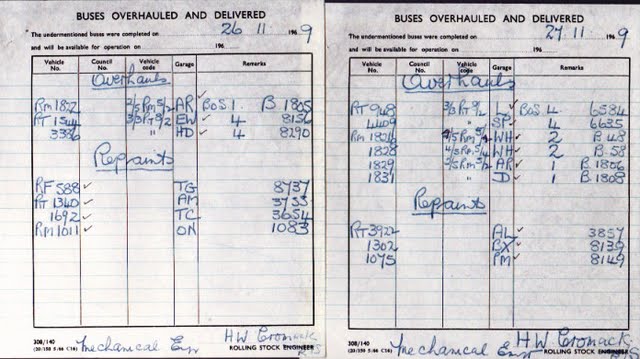 BUSES OVERHAULED AND DELIVERED
The undermentioned buses were completed on 26 11 1969
and will be available for operation on 196
Vehicle No. Council No. Vehicle code Garage Remarks
Overhauls
RM 1822 2/5RM5/2 AR BoS 1. B 1805
RT 1544 3/3RT8/2 EW 4 8156
3386 " HD 4 8290
Repaints
RF 588 TG 8737
RT 1340 AM 3733
1692 TC 3654
RM 1011 ON 1083
308/140
Mechanical Eng
HW Cromack
ROLLING STOCK ENGINEER
BUSES OVERHAULED AND DELIVERED
The undermentioned buses were completed on 27 11 1969
and will be available for operation on 196
Vehicle No. Council No. Vehicle code Garage Remarks
Overhauls
RT 948 L BoS 4. 6584
4409 " SP 4 6635
RM 1824 WH 2 B 48
1828 WH 2 B 58
1829 AR 1 B 1806
1831 " D 1 B 1808
Repaints
RT 3922 AL 3857
1302 BX 8139
1075 PM 8149
308/140
Mechanical Eng
HW Cromack
ROLLING STOCK ENGINEER